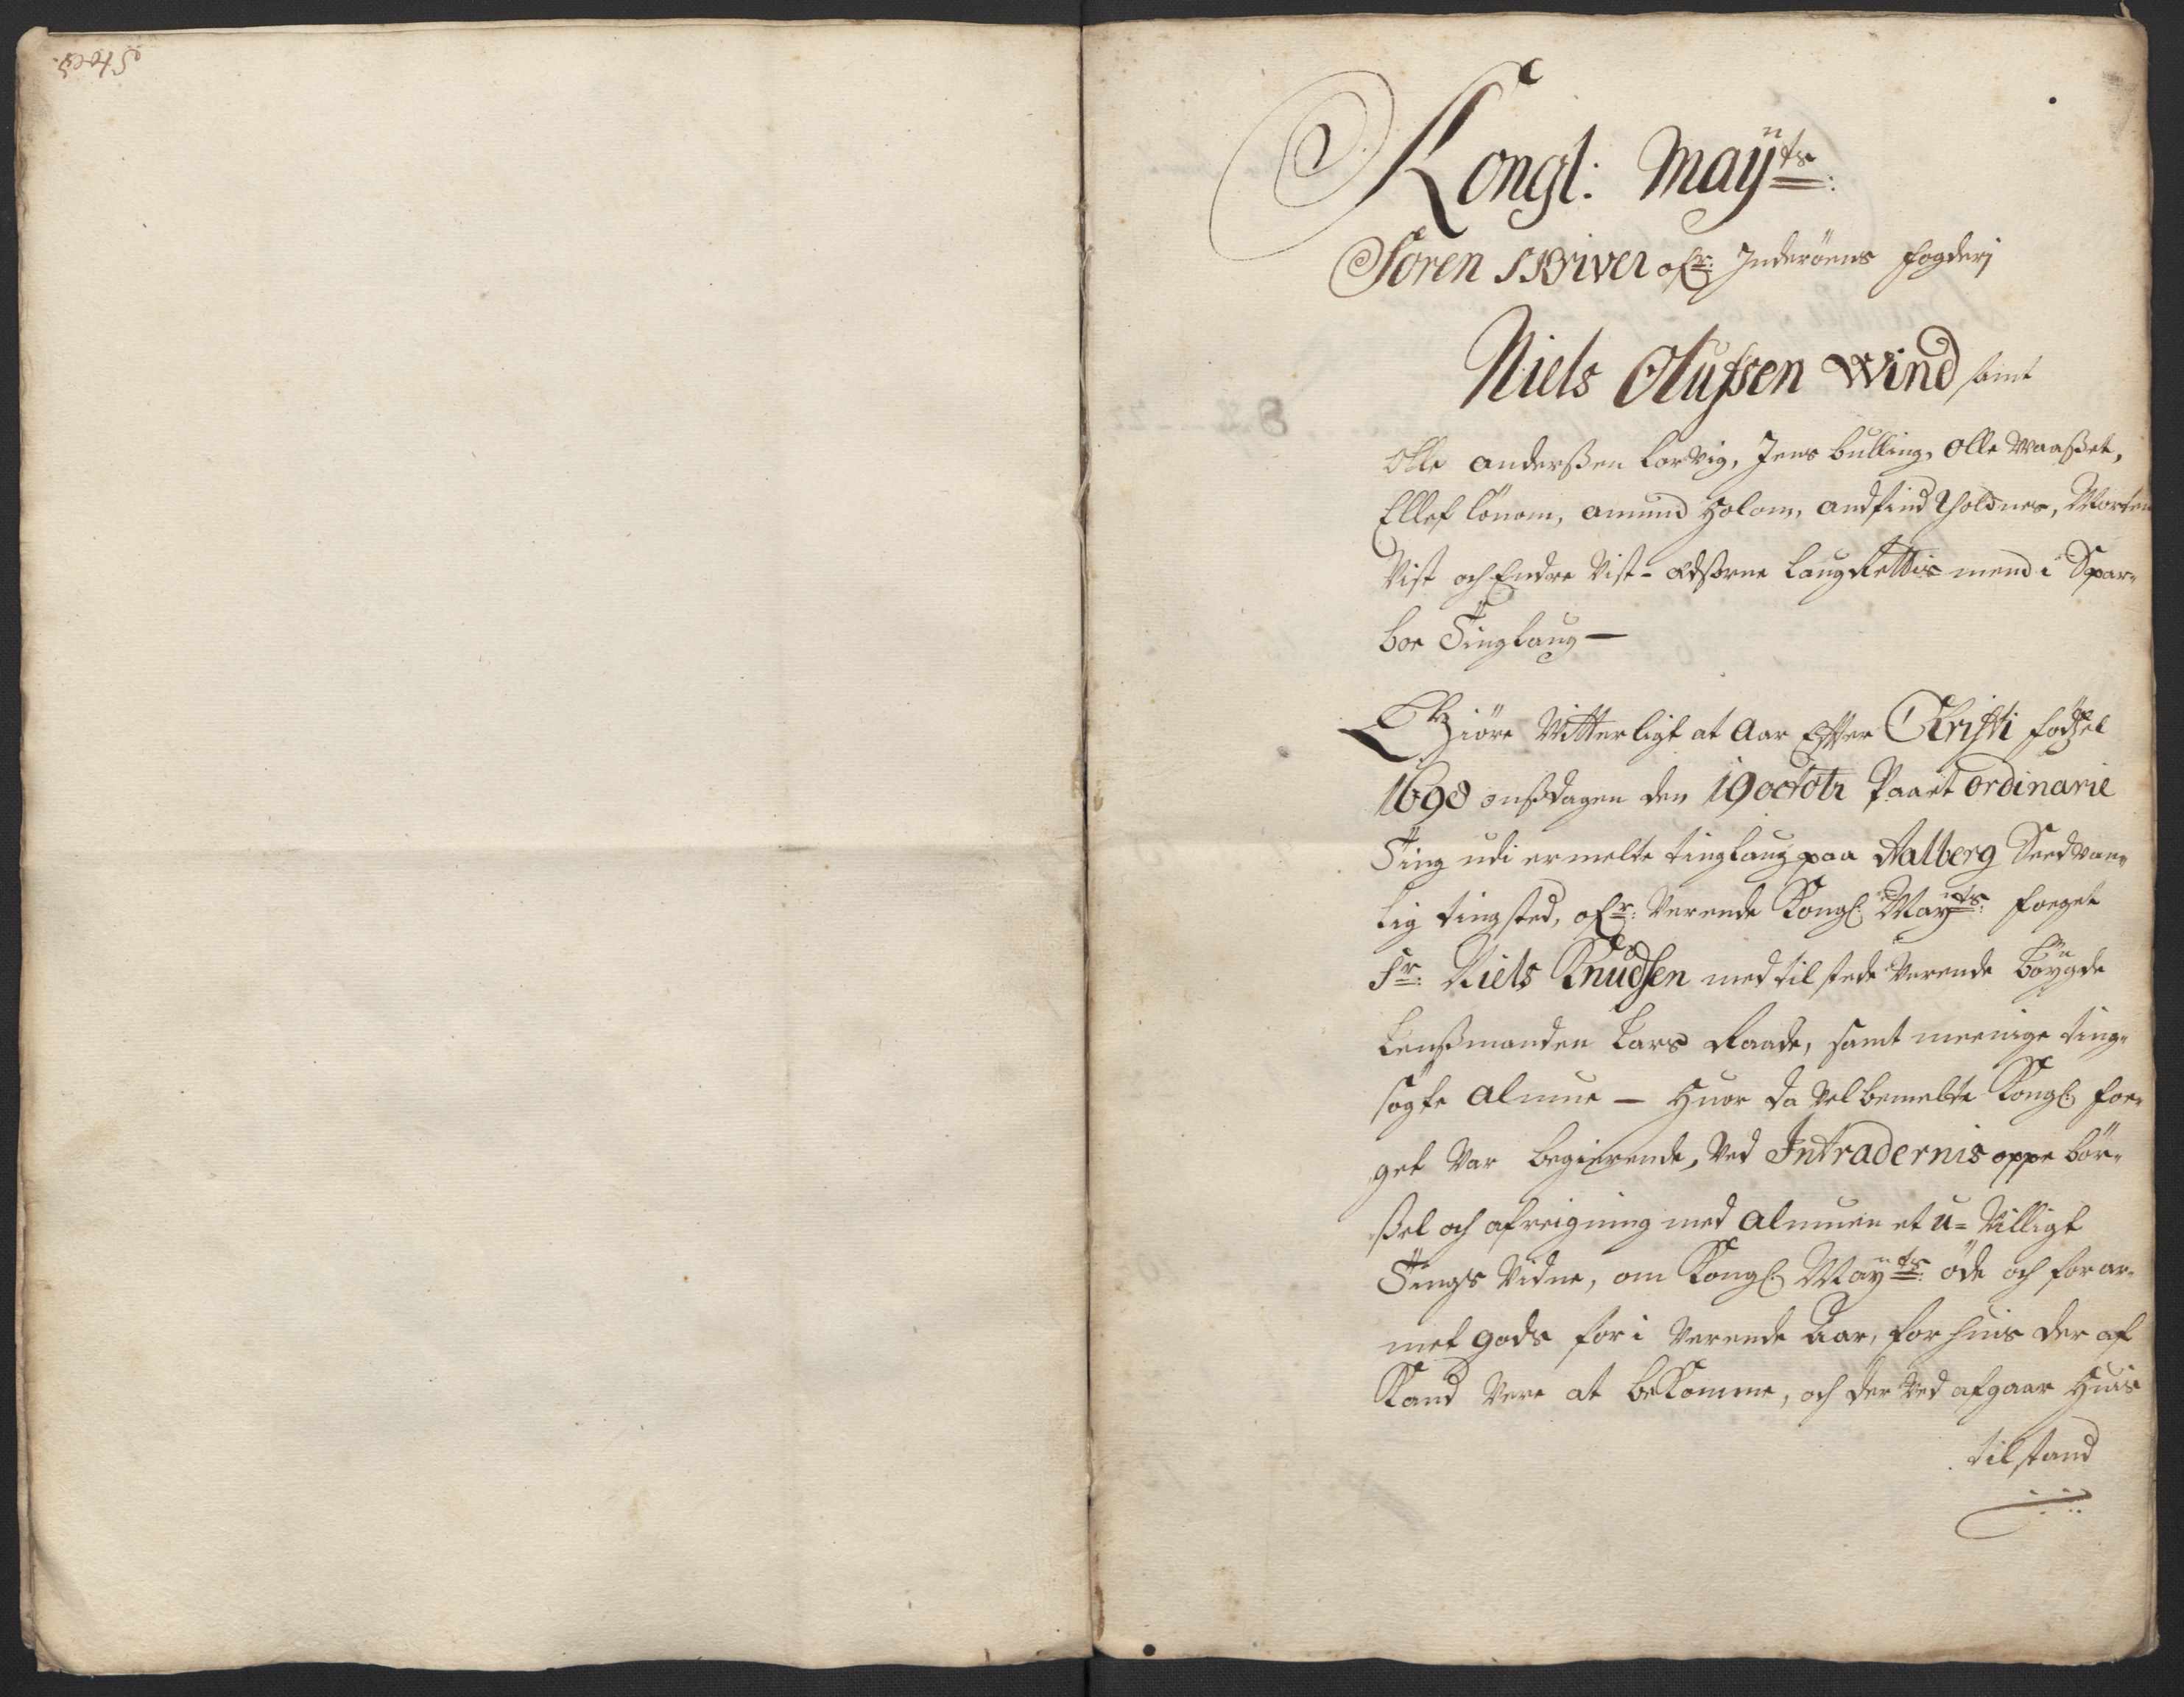 Kongl: Maÿts:
Soren skriver ofr: Inderöens fogderj
Niels Olufsen Wind samt
Olle Anderßen Lorvig, Jens bulling, Olle Maaßet,
Ellef lönom, Amund Holom, Andfind Tholdnes, Morten
Vist och Endre Vist - Edsorne laugRettis mend i Spar-
boe Tinglaug —
Giöre Vitterligt at Aar Effter Christi födzel
1698 onsdagen den 19 octobr Paa et ordinarie
Ting udi ermelte tinglaug paa Aalberg Seedvan-
lig tingsted, ofr: Verende Kongl: Maÿts: foeget
Sr: Niels Knudsen med tilstede Verende böygde
Lensmanden Lars Raade, samt meenige ting-
sögte Almue — Huor da Velbemelte Kongl: foe-
get Var begierende, Ved Intradernis oppe bör-
ßel och afreigning med Almuen et u-Villigt
Tings Vidne, om Kongl: Mayts: öde och forar-
met gods for i Verende Aar, for huis der af
Kand Vere at beKomme, och der Ved afgaar Huis
tilstand